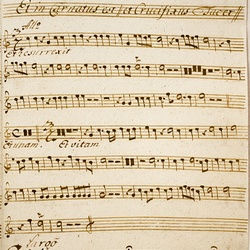 Et in Carnatus est et Crucifixus Tacet
Allo
Et resurrexit
Et unam. Et vitam
Largo